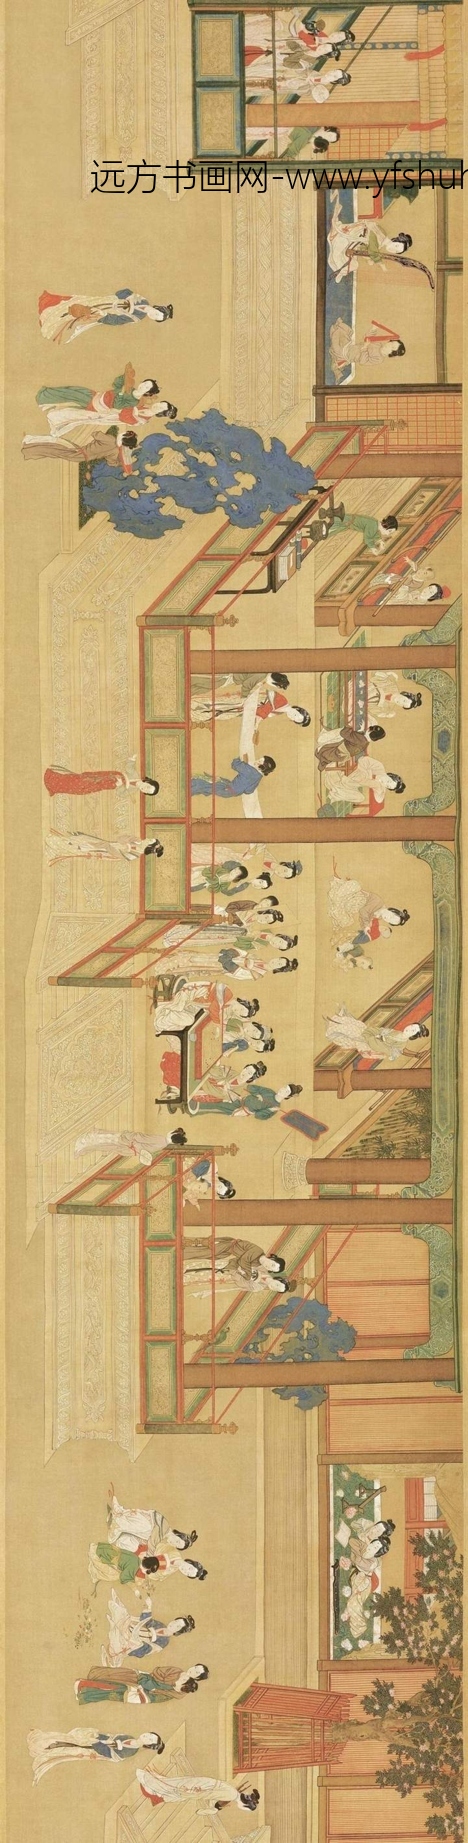 远方书画网-www.yfshuh